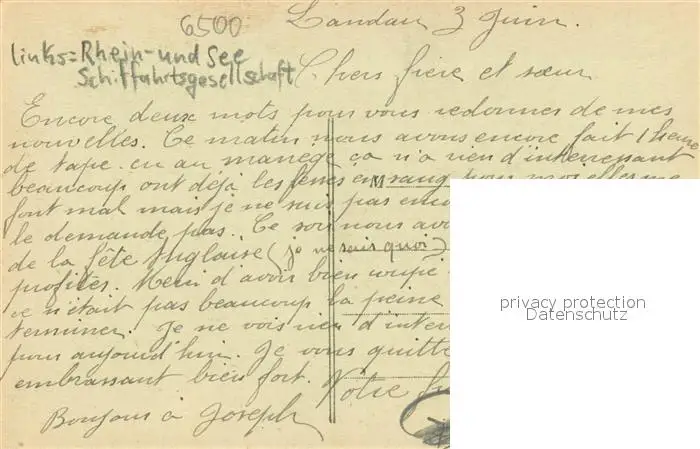 6500
Landau 3 Juin.
links = Rhein- und See
Schiffahrtsgesellschaft
Chers frère et sœur
Encore deux mots pour vous redonner de mes
nouvelles. Ce matin nous avons encore fait 1 heure
de tape cu au manège ça n'a rien d'interressant
beaucoup ont déjà les fesses en sang pour moi elles me
font mal mais je ne suis pas enco
le demande pas. Ce soir nous avo
de la fête Anglaise (je ne sais quoi)
profités. Merci d'avoir bien coupé
ce n'était pas beaucoup la peine
terminer. Je ne vois rien d'inter
pour aujourd'hui. Je vous quitte
embrassant bien fort. Votre
Bonjour à Joseph
M
privacy protection
Datenschutz